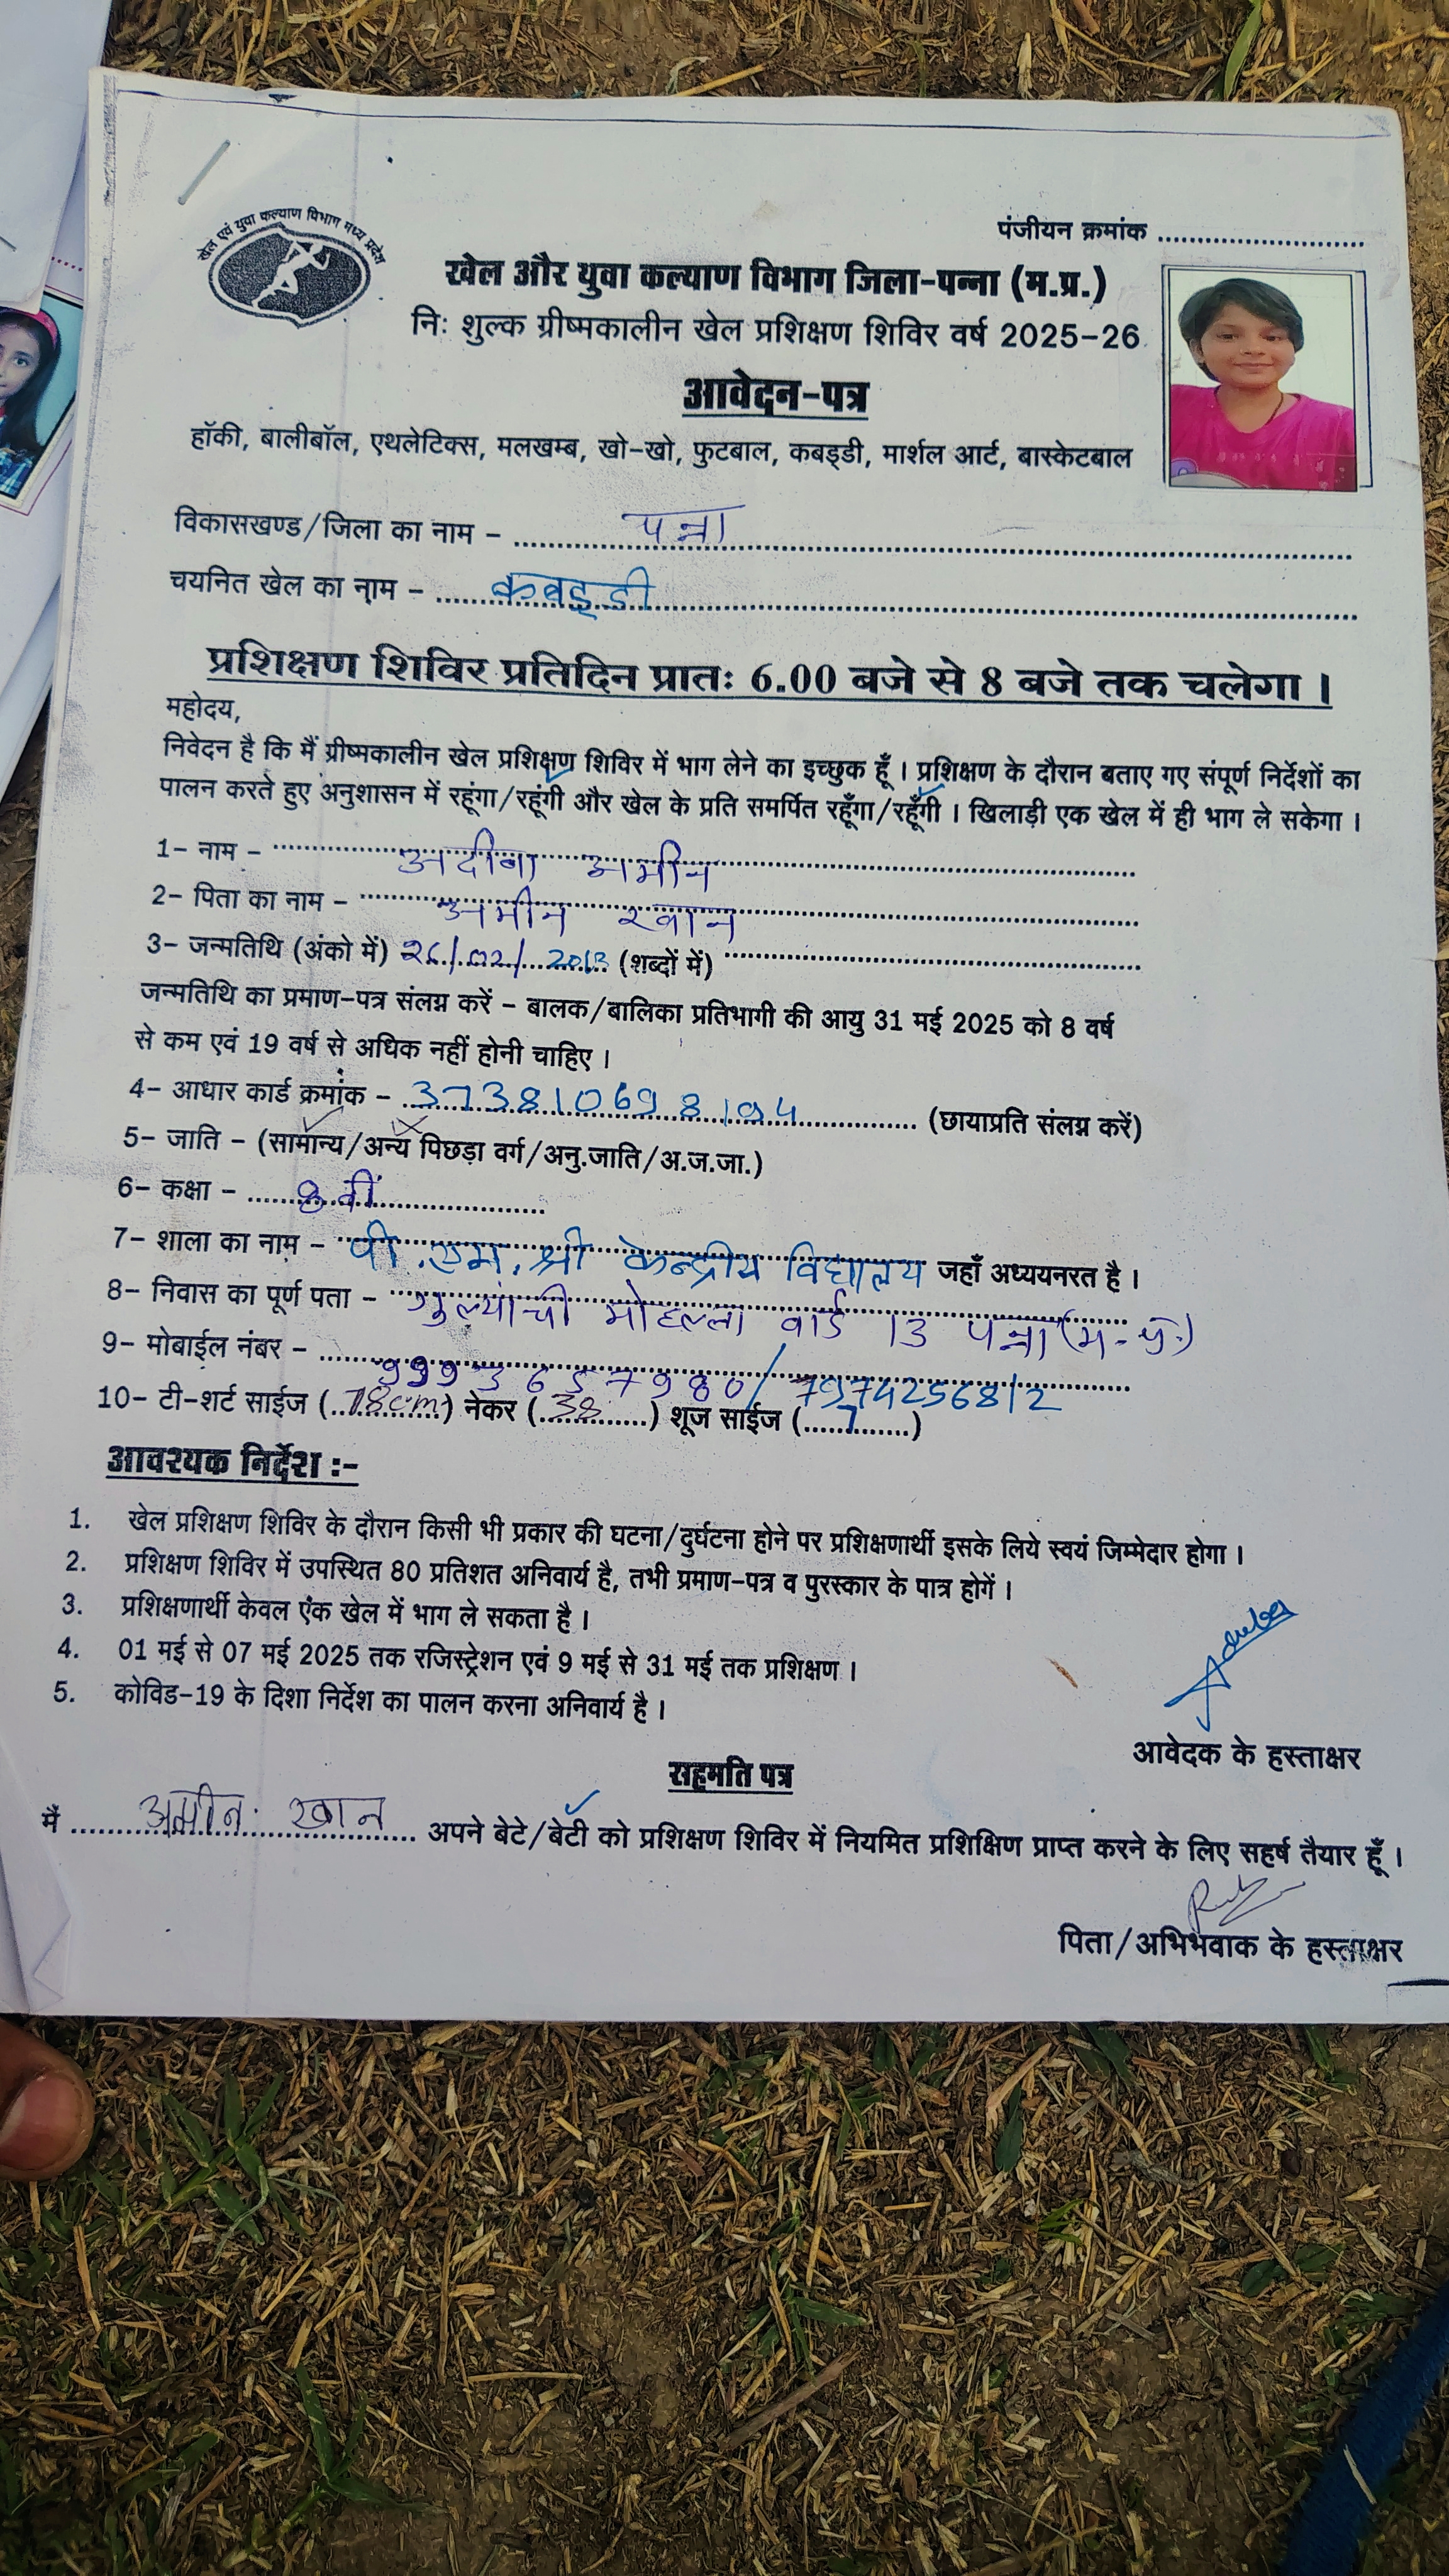 खेल एवं युवा कल्याण विभाग मध्य प्रदेश
पंजीयन क्रमांक ............................
खेल और युवा कल्याण विभाग जिला-पन्ना (म.प्र.)
निः शुल्क ग्रीष्मकालीन खेल प्रशिक्षण शिविर वर्ष 2025-26
आवेदन-पत्र
हॉकी, बालीबॉल, एथलेटिक्स, मलखम्ब, खो-खो, फुटबाल, कबड्डी, मार्शल आर्ट, बास्केटबाल
विकासखण्ड/जिला का नाम - पन्ना
चयनित खेल का नाम - कबड्डी
प्रशिक्षण शिविर प्रतिदिन प्रातः 6.00 बजे से 8 बजे तक चलेगा ।
महोदय,
निवेदन है कि मैं ग्रीष्मकालीन खेल प्रशिक्षण शिविर में भाग लेने का इच्छुक हूँ । प्रशिक्षण के दौरान बताए गए संपूर्ण निर्देशों का
पालन करते हुए अनुशासन में रहूंगा/रहूंगी और खेल के प्रति समर्पित रहूँगा/रहूँगी । खिलाड़ी एक खेल में ही भाग ले सकेगा ।
1- नाम - अदीबा अमीन
2- पिता का नाम - अमीन खान
3- जन्मतिथि (अंको में) 26/02/2013 (शब्दों में)
जन्मतिथि का प्रमाण-पत्र संलग्न करें - बालक/बालिका प्रतिभागी की आयु 31 मई 2025 को 8 वर्ष
से कम एवं 19 वर्ष से अधिक नहीं होनी चाहिए ।
4- आधार कार्ड क्रमांक - 373810698194 (छायाप्रति संलग्न करें)
5- जाति - (सामान्य/अन्य पिछड़ा वर्ग/अनु.जाति/अ.ज.जा.)
6- कक्षा - 8 वीं
7- शाला का नाम - पी.एम.श्री केन्द्रीय विद्यालय जहाँ अध्ययनरत है ।
8- निवास का पूर्ण पता - मोहल्ला वार्ड 13 पन्ना (म.प्र.)
9- मोबाईल नंबर - 9993657980/7974256812
10- टी-शर्ट साईज (78cm) नेकर (38) शूज साईज (7)
आवश्यक निर्देश :-
1. खेल प्रशिक्षण शिविर के दौरान किसी भी प्रकार की घटना/दुर्घटना होने पर प्रशिक्षणार्थी इसके लिये स्वयं जिम्मेदार होगा ।
2. प्रशिक्षण शिविर में उपस्थित 80 प्रतिशत अनिवार्य है, तभी प्रमाण-पत्र व पुरस्कार के पात्र होगें ।
3. प्रशिक्षणार्थी केवल एक खेल में भाग ले सकता है ।
4. 01 मई से 07 मई 2025 तक रजिस्ट्रेशन एवं 9 मई से 31 मई तक प्रशिक्षण ।
5. कोविड-19 के दिशा निर्देश का पालन करना अनिवार्य है ।
आवेदक के हस्ताक्षर
सहमति पत्र
मैं अमीन खान अपने बेटे/बेटी को प्रशिक्षण शिविर में नियमित प्रशिक्षिण प्राप्त करने के लिए सहर्ष तैयार हूँ ।
पिता/अभिभवाक के हस्ताक्षर